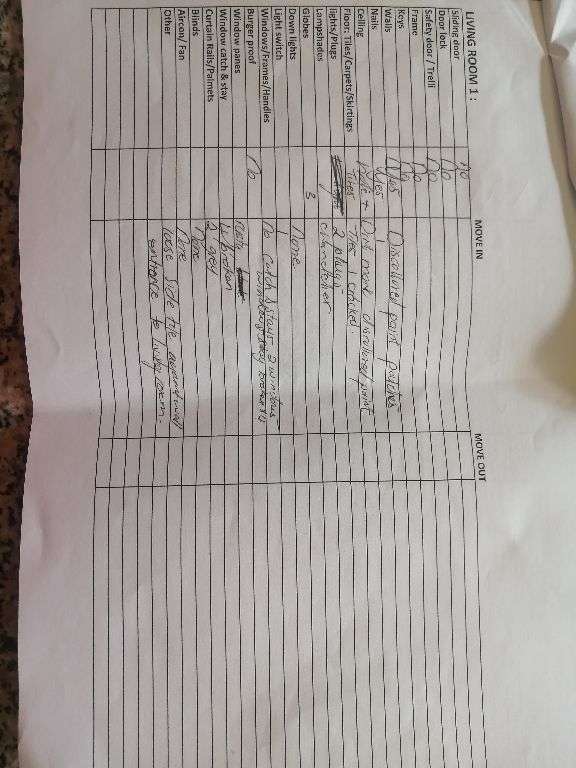 LIVING ROOM 1 : MOVE IN MOVE OUT
Sliding door no
Door lock No
Safety door / Trelli No
Frame No
Keys No
Walls Discoloured paint patches
Nails Yes 1
Ceiling + Dirt mark discoloured paint
Floor: Tiles/Carpets/Skirtings Tiles Tiles 1 cracked.
lights/Plugs 2 plugs
Lampshades
Globes 3
Down lights None
Light switch 1
Windows/Frames/Handles No catch & stays 2 windows
Burger proof No
Window panes
Window catch & stay broken
Curtain Rails/Palmets 2 grey
Blinds None
Aircon/ Fan None
Other loose side tile against wall
entrance to living room.